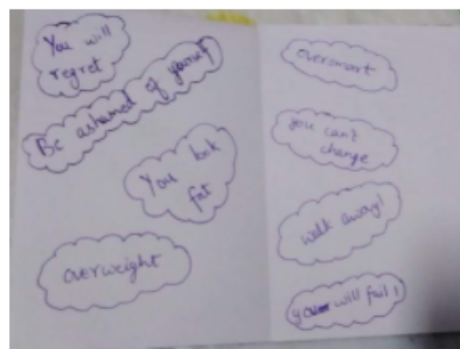 You will
regret
Be ashamed of yourself
You look
fat
overweight
oversmart
you can't
change
walk away!
you will fail!